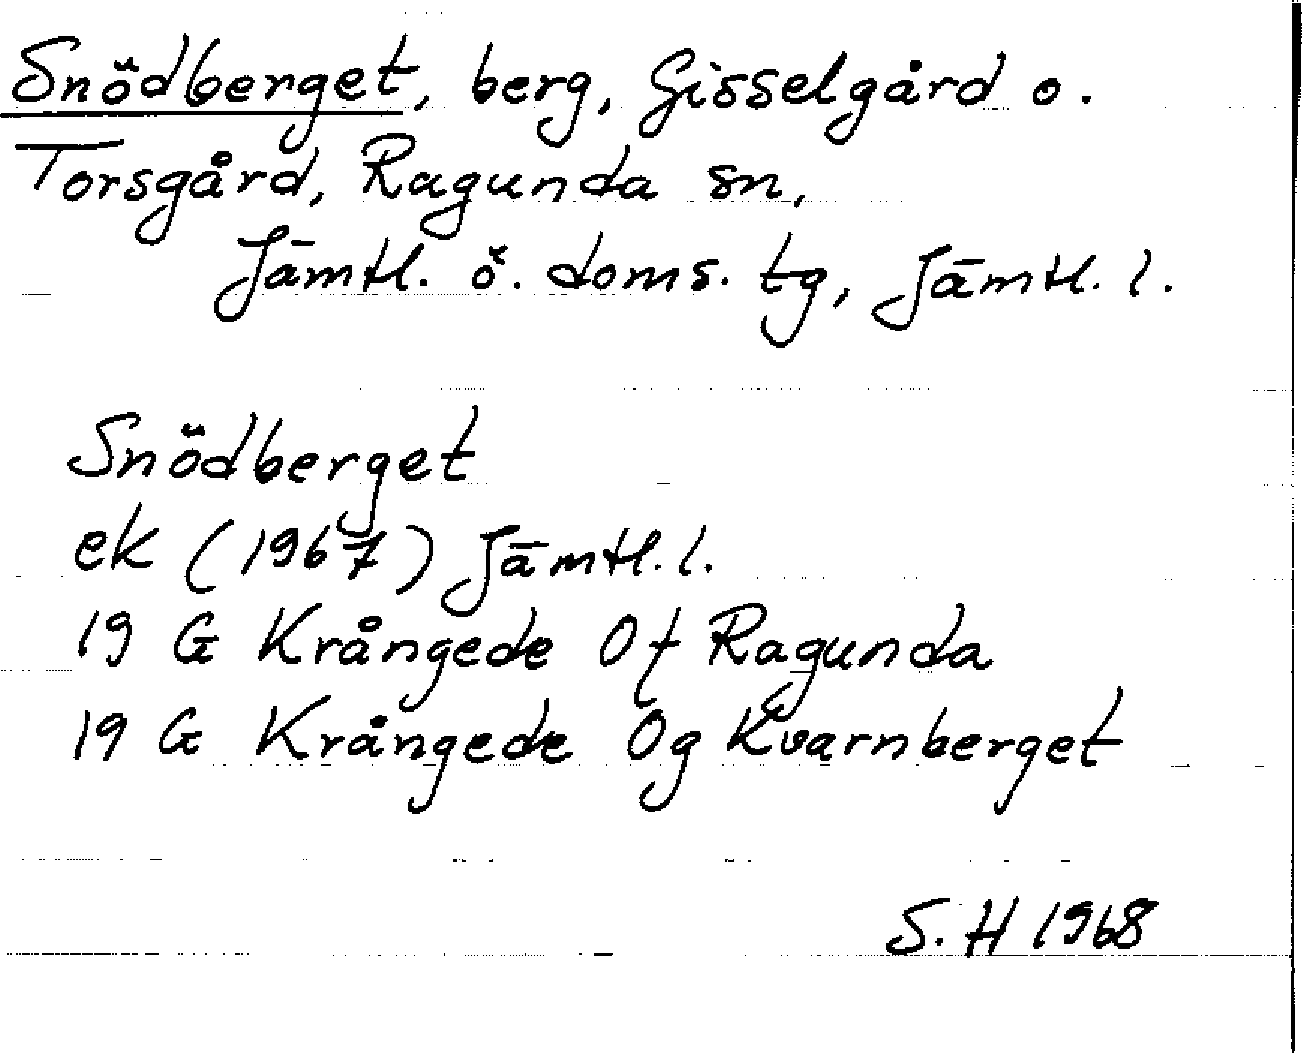 Snödberget, berg, Gisselgård o.
Torsgård, Ragunda sn,
Jämtl. ö. doms. tg, Jämtl. l.
Snödberget
ek (1967) Jämtl. l.
19 G Krångede 0f Ragunda
19 G Krångede 0g Kvarnberget
S. H 1968